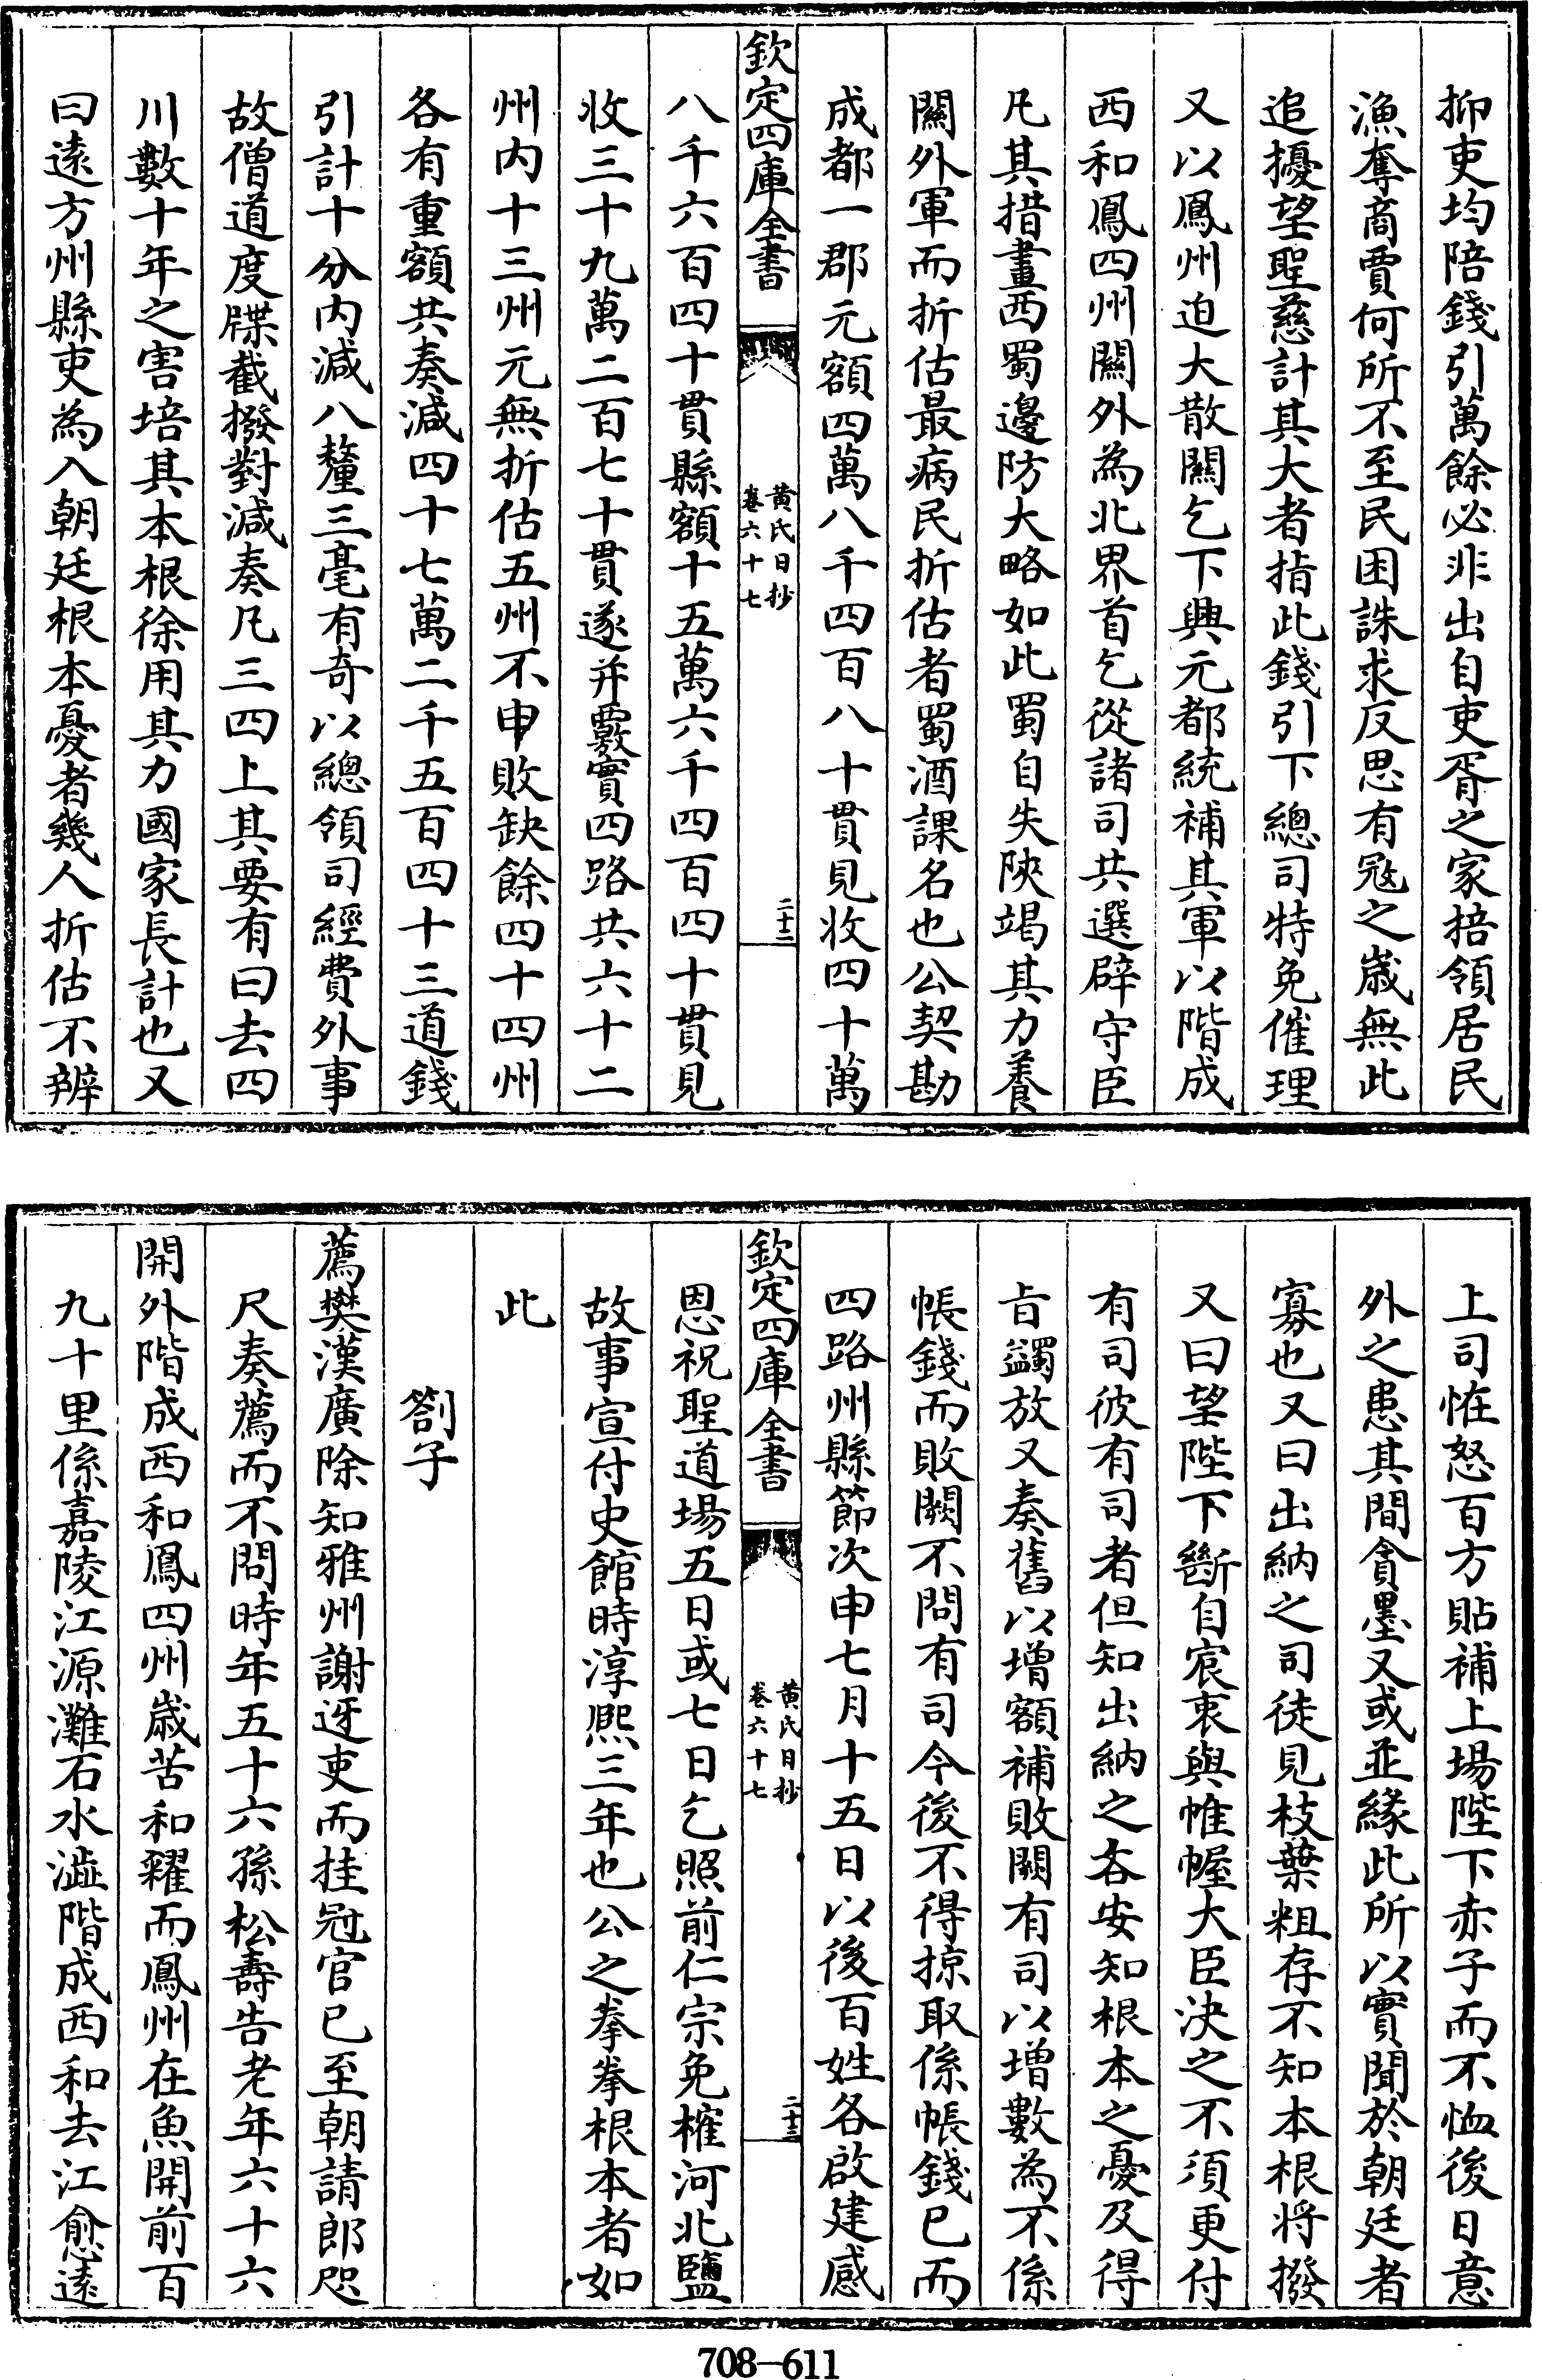 抑吏均陪錢引萬餘必非出自吏胥之家掊領居民
漁奪商賈何所不至民困誅求反思有冦之嵗無此
追擾望聖慈計其大者捐此錢引下總司特免催理
又以鳳州迫大散關乞下興元都統補其軍以階成
西和鳳四州關外為北界首乞從諸司共選辟守臣
凡其措畫西蜀邊防大略如此蜀自失陜竭其力養
關外軍而折估最病民折估者蜀酒課名也公契勘
成都一郡元額四萬八千四百八十貫見收四十萬
欽定四庫全書
黄氏日抄
卷六十七
二十二
八千六百四十貫縣額十五萬六千四百四十貫見
收三十九萬二百七十貫遂并覈實四路共六十二
州内十三州元無折估五州不申敗缺餘四十四州
各有重額共奏減四十七萬二千五百四十三道錢
引計十分内減八釐三毫有奇以總領司經費外事
故僧道度牒截撥對減奏凡三四上其要有曰去四
川數十年之害培其本根徐用其力國家長計也又
曰逺方州縣吏為入朝廷根本憂者幾人折估不辨
上司恠怒百方貼補上場陛下赤子而不恤後日意
外之患其間貪墨又或並緣此所以實聞於朝廷者
寡也又曰出納之司徒見枝葉粗存不知本根将撥
又曰望陛下斷自宸衷與帷幄大臣決之不須更付
有司彼有司者但知出納之吝安知根本之憂及得
㫖蠲放又奏舊以增額補敗闕有司以增數為不係
帳錢而敗闕不問有司今後不得掠取係帳錢已而
四路州縣節次申七月十五日以後百姓各啟建感
欽定四庫全書
黄氏日抄
卷六十七
二十三
恩祝聖道場五日或七日乞照前仁宗免榷河北鹽
故事宣付史館時淳熙三年也公之拳拳根本者如
此
劄子
薦樊漢廣除知雅州謝迓吏而挂冠官已至朝請郎咫
尺奏薦而不問時年五十六孫松壽告老年六十六
開外階成西和鳳四州嵗苦和糴而鳳州在魚開前百
九十里係嘉陵江源灘石水澁階成西和去江愈逺
708—611